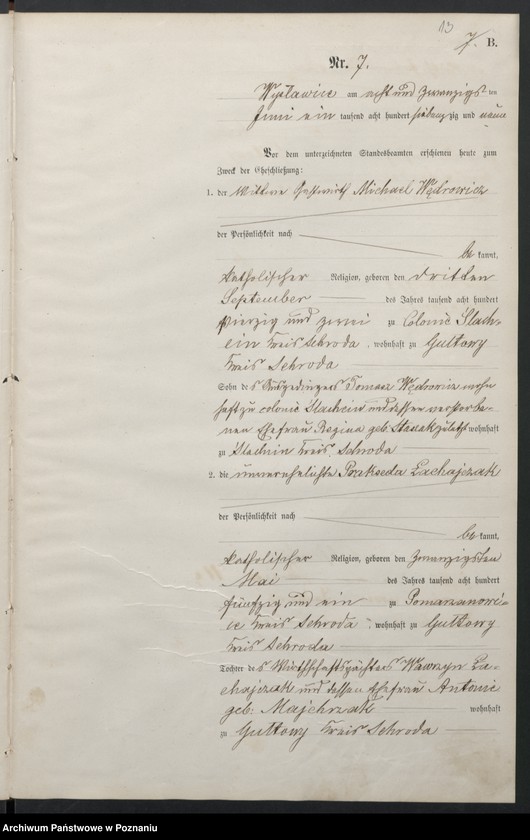 13
7. B.
Nr. 7.
am acht und zwanzigs ten
Juni ein tausend acht hundert siebenzig und neun
Vor dem unterzeichneten Standesbeamten erschienen heute zum
Zweck der Eheschließung:
1. der Wittwer Michael Wędrowicz
der Persönlichkeit nach
be kannt,
katholischer Religion, geboren den dritten
September des Jahres tausend acht hundert
vierzig und zwei zu Colonie Stach-
ein Kreis Schroda, wohnhaft zu Gultowy
Kreis Schroda
Sohn des Ausgedingers Tomasz Wędrowicz wohn
haft zu colonie und dessen verstorbe-
nen Ehefrau Regina geb. zuletzt wohnhaft
zu Kreis Schroda
2. die unverehelichte Prakseda Łachajczak
der Persönlichkeit nach
be kannt,
katholischer Religion, geboren den zwanzigsten
Mai des Jahres tausend acht hundert
fünfzig und ein zu Pomarzanowi-
ce Kreis Schroda, wohnhaft zu Gultowy
Kreis Schroda
Tochter des Wirthschaftspächters Wawrzyn Ła-
chajczak und dessen Ehefrau Antonie
geb. Majchrzak wohnhaft
zu Gultowy Kreis Schroda
Archiwum Państwowe w Poznaniu